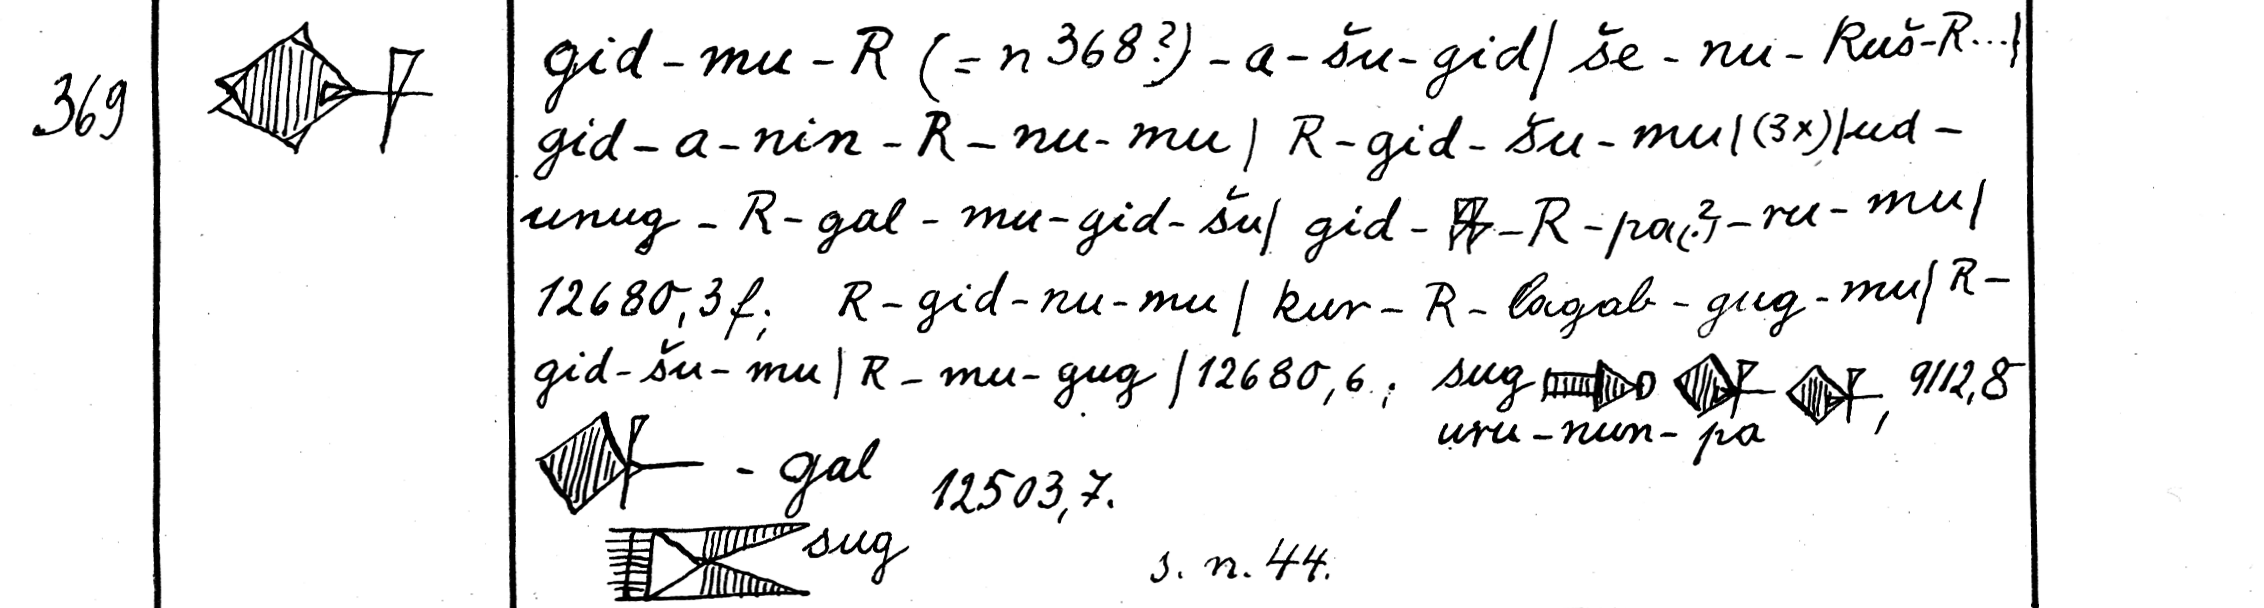 369
gid - mu - R (= n 368?) - a - šu - gid / še - nu - kuš - R... /
gid - a - nin - R - nu - mu / R - gid - šu - mu / (3x) / ud -
unug - R - gal - mu - gid - šu / gid - - R - pa(?) - ru - mu /
12680,3 f.; R - gid - nu - mu / kur - R - lagab - gug - mu / R -
gid - šu - mu / R - mu - gug / 12680,6.; sug , 9112,8
uru - nun - pa
- gal 12503,7.
sug s. n. 44.